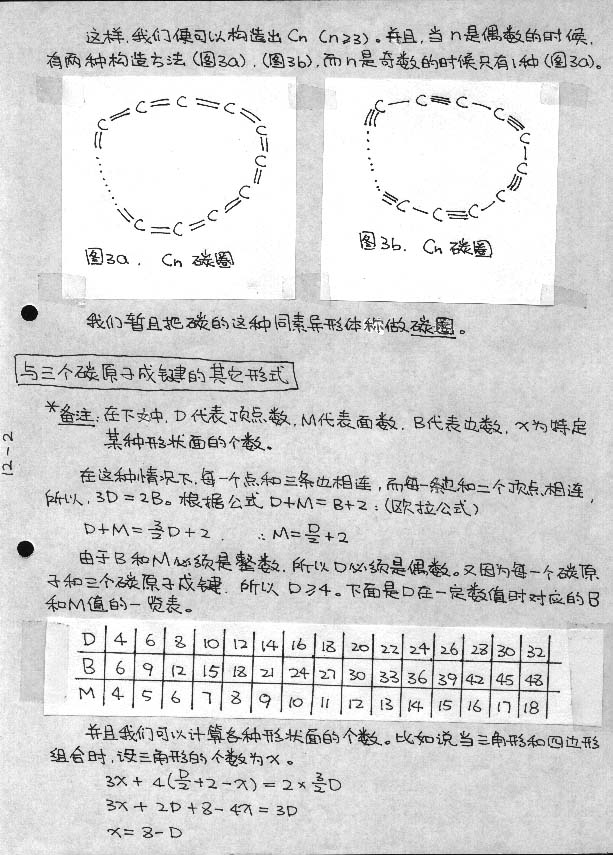 这样,我们便可以构造出Cn (n≥3)。并且,当n是偶数的时候,
有两种构造方法(图3a),(图3b),而n是奇数的时候只有1种(图3a)。
C=C=C=C=C=C=C=C=C=C
图3a. Cn 碳圈
C—C≡C—C≡C—C≡C—C≡C—C≡
图3b. Cn 碳圈
我们暂且把碳的这种同素异形体称做碳圈。
与三个碳原子成键的其它形式
*备注:在下文中,D代表顶点数,M代表面数,B代表边数,x为特定
某种形状面的个数。
12-2
在这种情况下,每一个点和三条边相连,而每一条边和二个顶点相连,
所以,3D=2B。根据公式 D+M=B+2:(欧拉公式)
D+M=3/2D+2 . ∴M=D/2+2
由于B和M必须是整数,所以D必须是偶数。又因为每一个碳原
子和三个碳原子成键,所以D≥4。下面是D在一定数值时对应的B
和M值的一览表。
D 4 6 8 10 12 14 16 18 20 22 24 26 28 30 32
B 6 9 12 15 18 21 24 27 30 33 36 39 42 45 48
M 4 5 6 7 8 9 10 11 12 13 14 15 16 17 18
并且我们可以计算各种形状面的个数。比如说当三角形和四边形
组合时,设三角形的个数为x。
3x+4(D/2+2-x)=2×3/2D
3x+2D+8-4x=3D
x=8-D